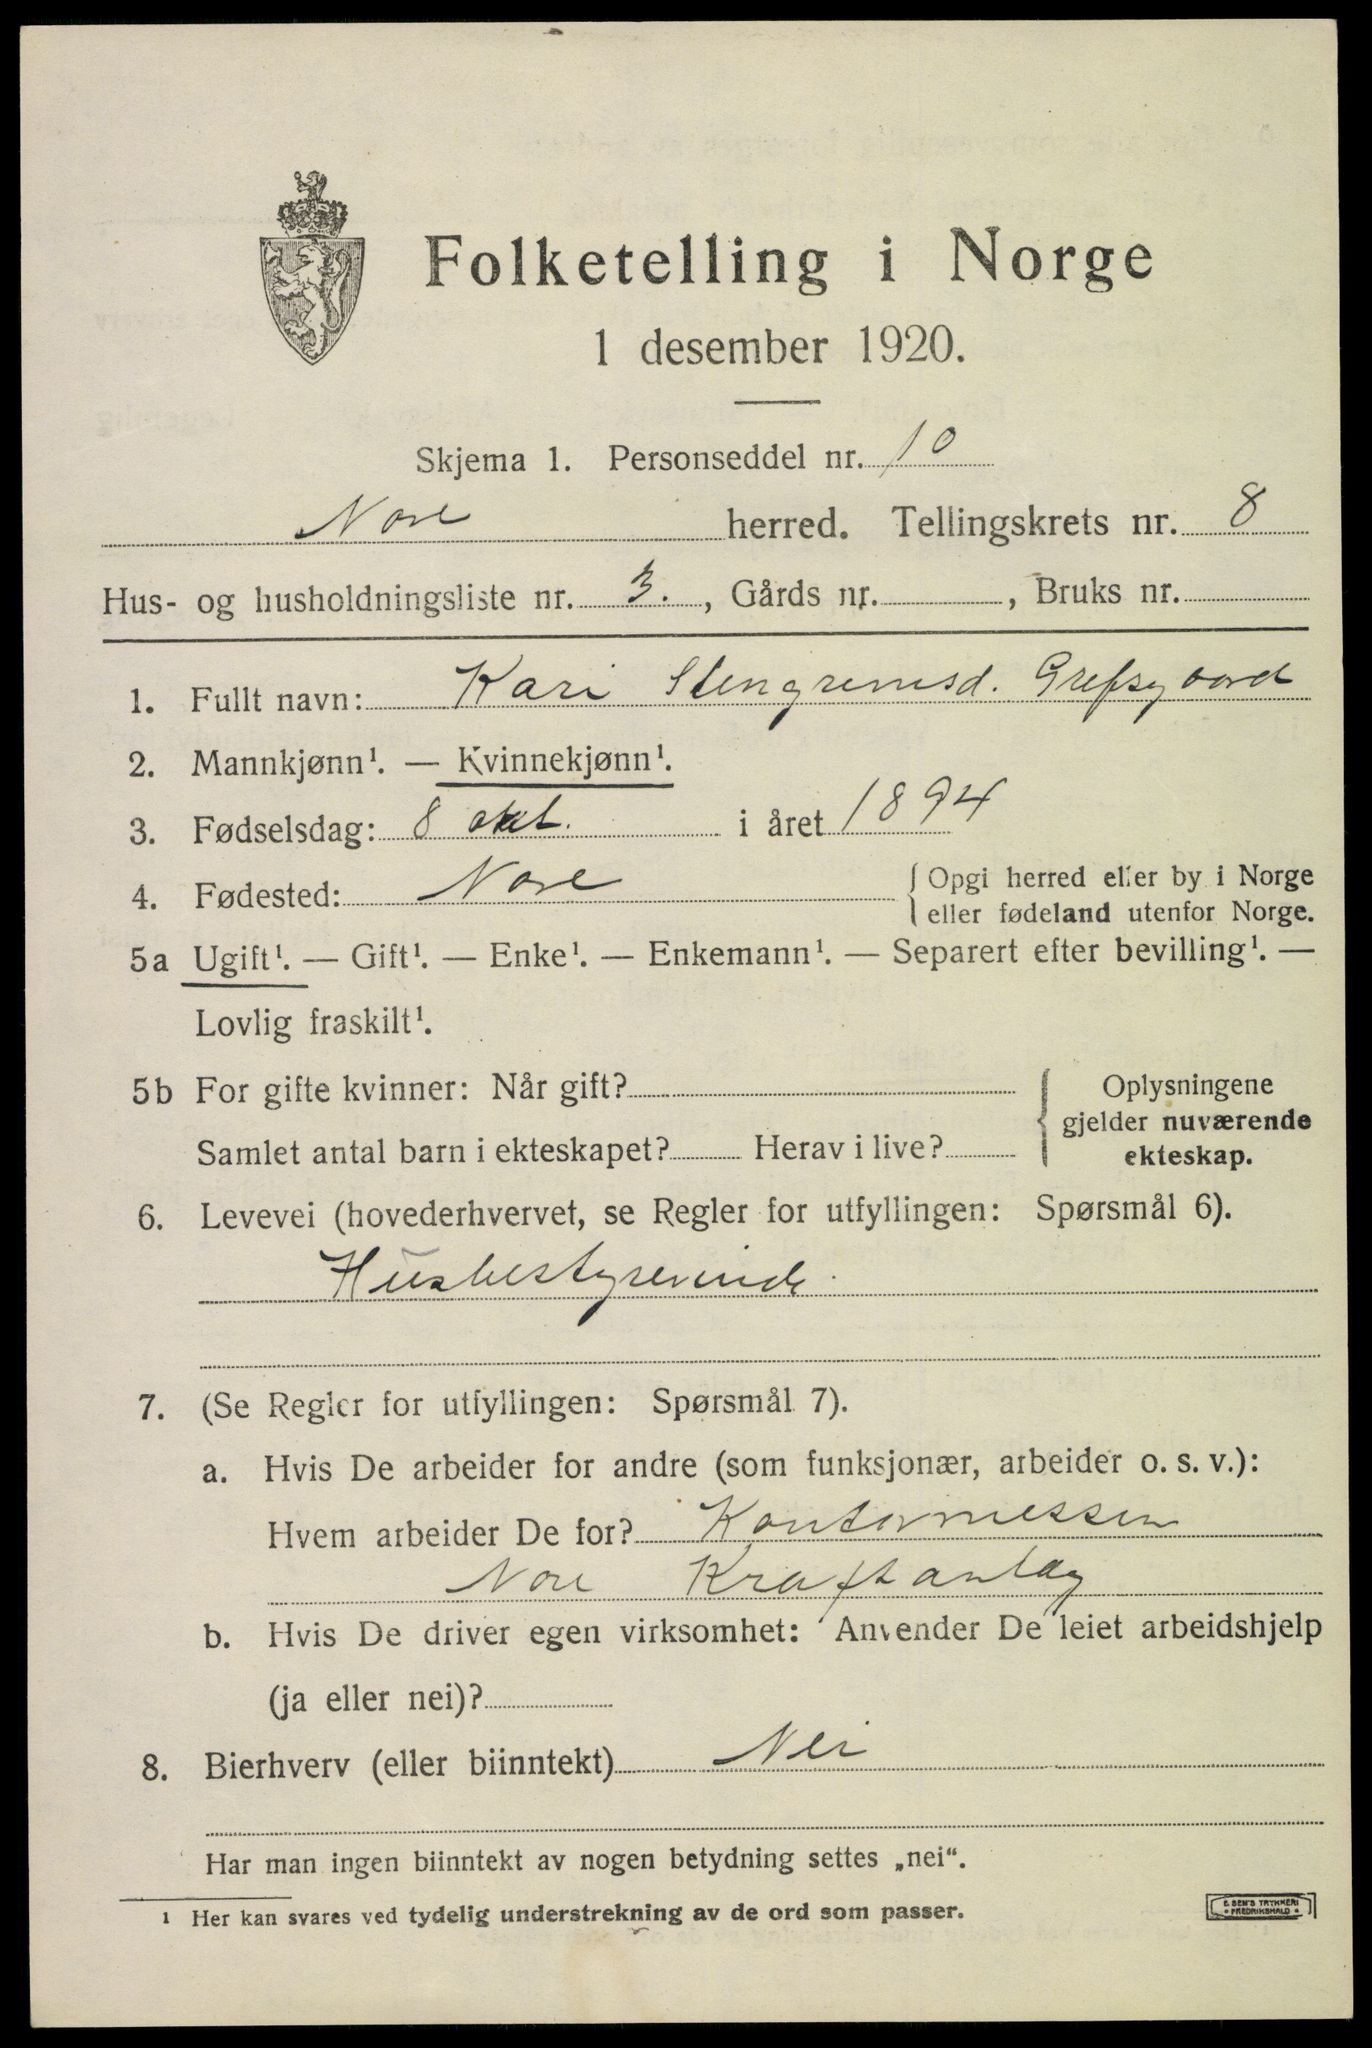 Folketelling i Norge
1 desember 1920.
Skjema 1. Personseddel nr. 10
Nore herred. Tellingskrets nr. 8
Hus- og husholdningsliste nr. 3., Gårds nr. , Bruks nr.
1. Fullt navn: Kari Stengrimsd. Grefsgaard
2. Mannkjønn¹. — Kvinnekjønn¹.
3. Fødselsdag: 8 okt. i året 1894
4. Fødested: Nore { Opgi herred eller by i Norge
eller fødeland utenfor Norge.
5a Ugift¹. — Gift¹. — Enke¹. — Enkemann¹. — Separert efter bevilling¹. —
Lovlig fraskilt¹.
5b For gifte kvinner: Når gift? { Oplysningene
gjelder nuværende
Samlet antal barn i ekteskapet? Herav i live? ekteskap.
6. Levevei (hovederhvervet, se Regler for utfyllingen: Spørsmål 6).
Husbestyrerinde.
7. (Se Regler for utfyllingen: Spørsmål 7).
a. Hvis De arbeider for andre (som funksjonær, arbeider o. s. v.):
Hvem arbeider De for? Kontormessen
Nore Kraftanlæg
b. Hvis De driver egen virksomhet: Anvender De leiet arbeidshjelp
(ja eller nei)?
8. Bierhverv (eller biinntekt) Nei
Har man ingen biinntekt av nogen betydning settes „nei“.
¹ Her kan svares ved tydelig understrekning av de ord som passer.
TRYKKERI
FREDRIKSHALD